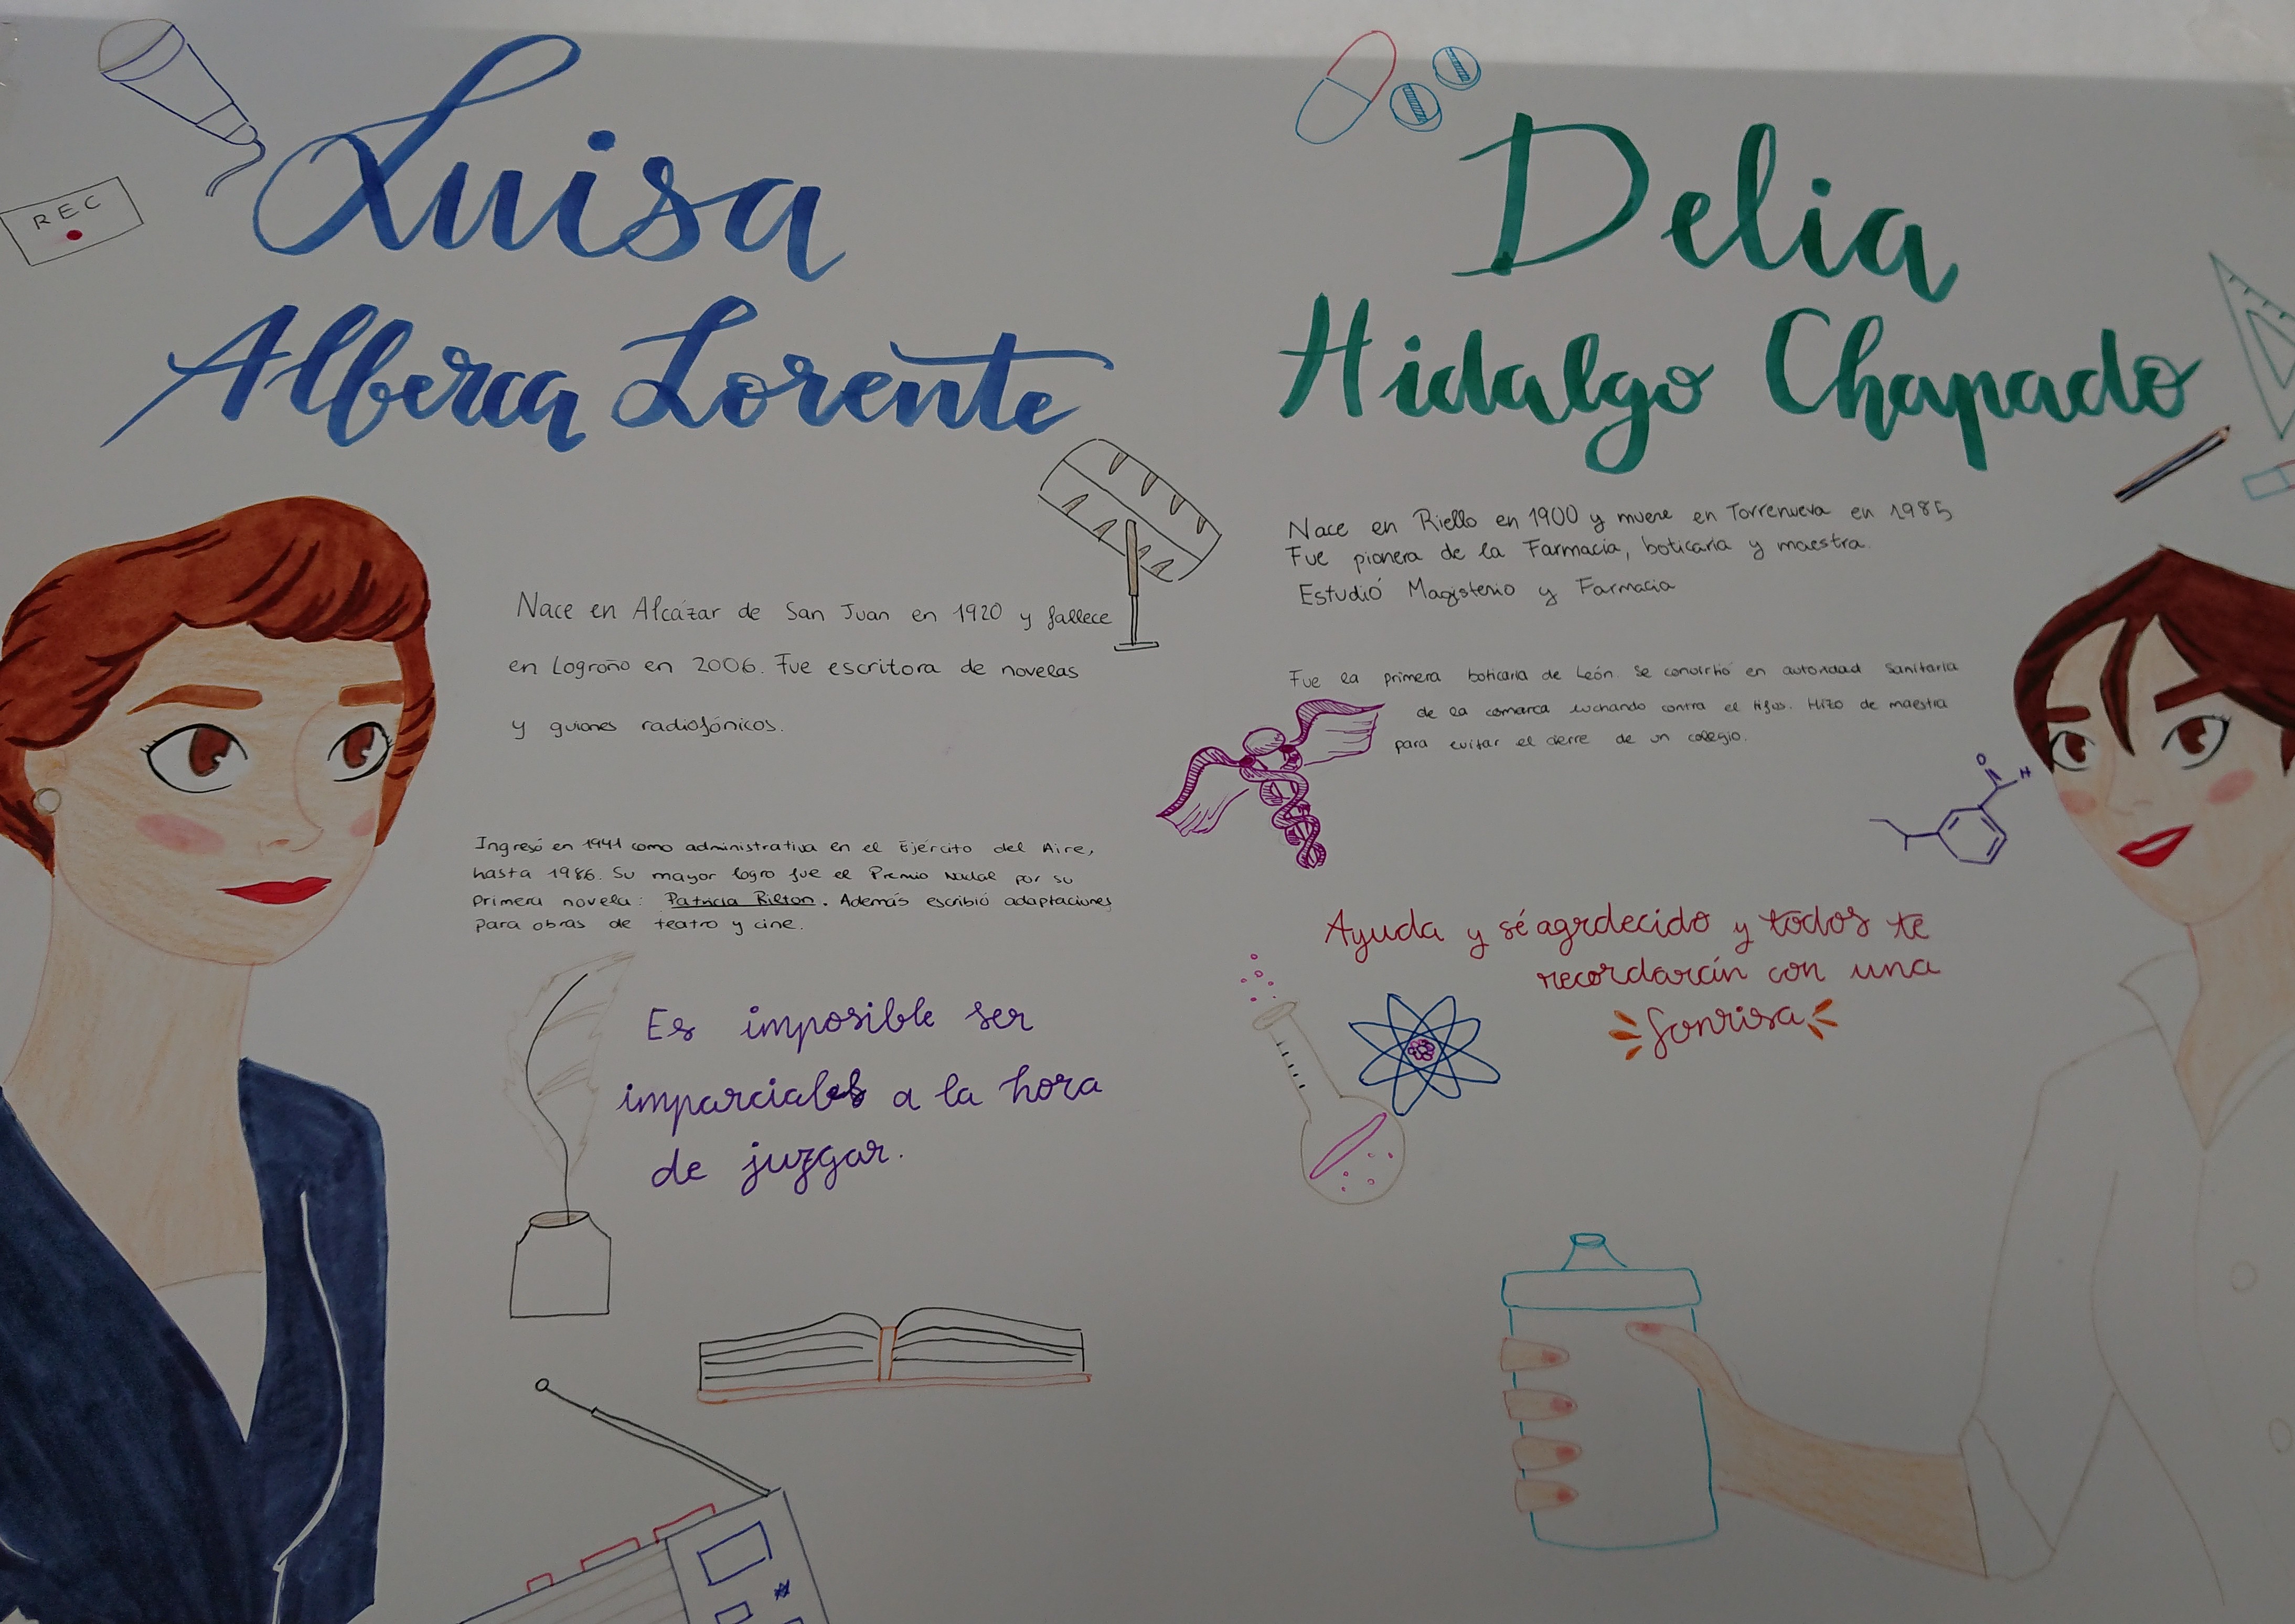 REC
Luisa
Alberca Lorente
Nace en Alcázar de San Juan en 1920 y fallece
en Logroño en 2006. Fue escritora de novelas
y guiones radiofónicos.
Ingresó en 1941 como administrativa en el Ejército del Aire,
hasta 1986. Su mayor logro fue el Premio Nadal por su
primera novela: Patricia Rilton. Además escribió adaptaciones
para obras de teatro y cine.
Es imposible ser
imparciales a la hora
de juzgar.
Delia
Hidalgo Chapado
Nace en Riello en 1900 y muere en Torrenueva en 1985
Fue pionera de la Farmacia, boticaria y maestra.
Estudió Magisterio y Farmacia
Fue la primera boticaria de León. Se convirtió en autoridad Sanitaria
de la comarca luchando contra el tifus. Hizo de maestra
para evitar el cierre de un colegio.
O
H
Ayuda y sé agrdecido y todos te
recordarán con una
Sonrisa